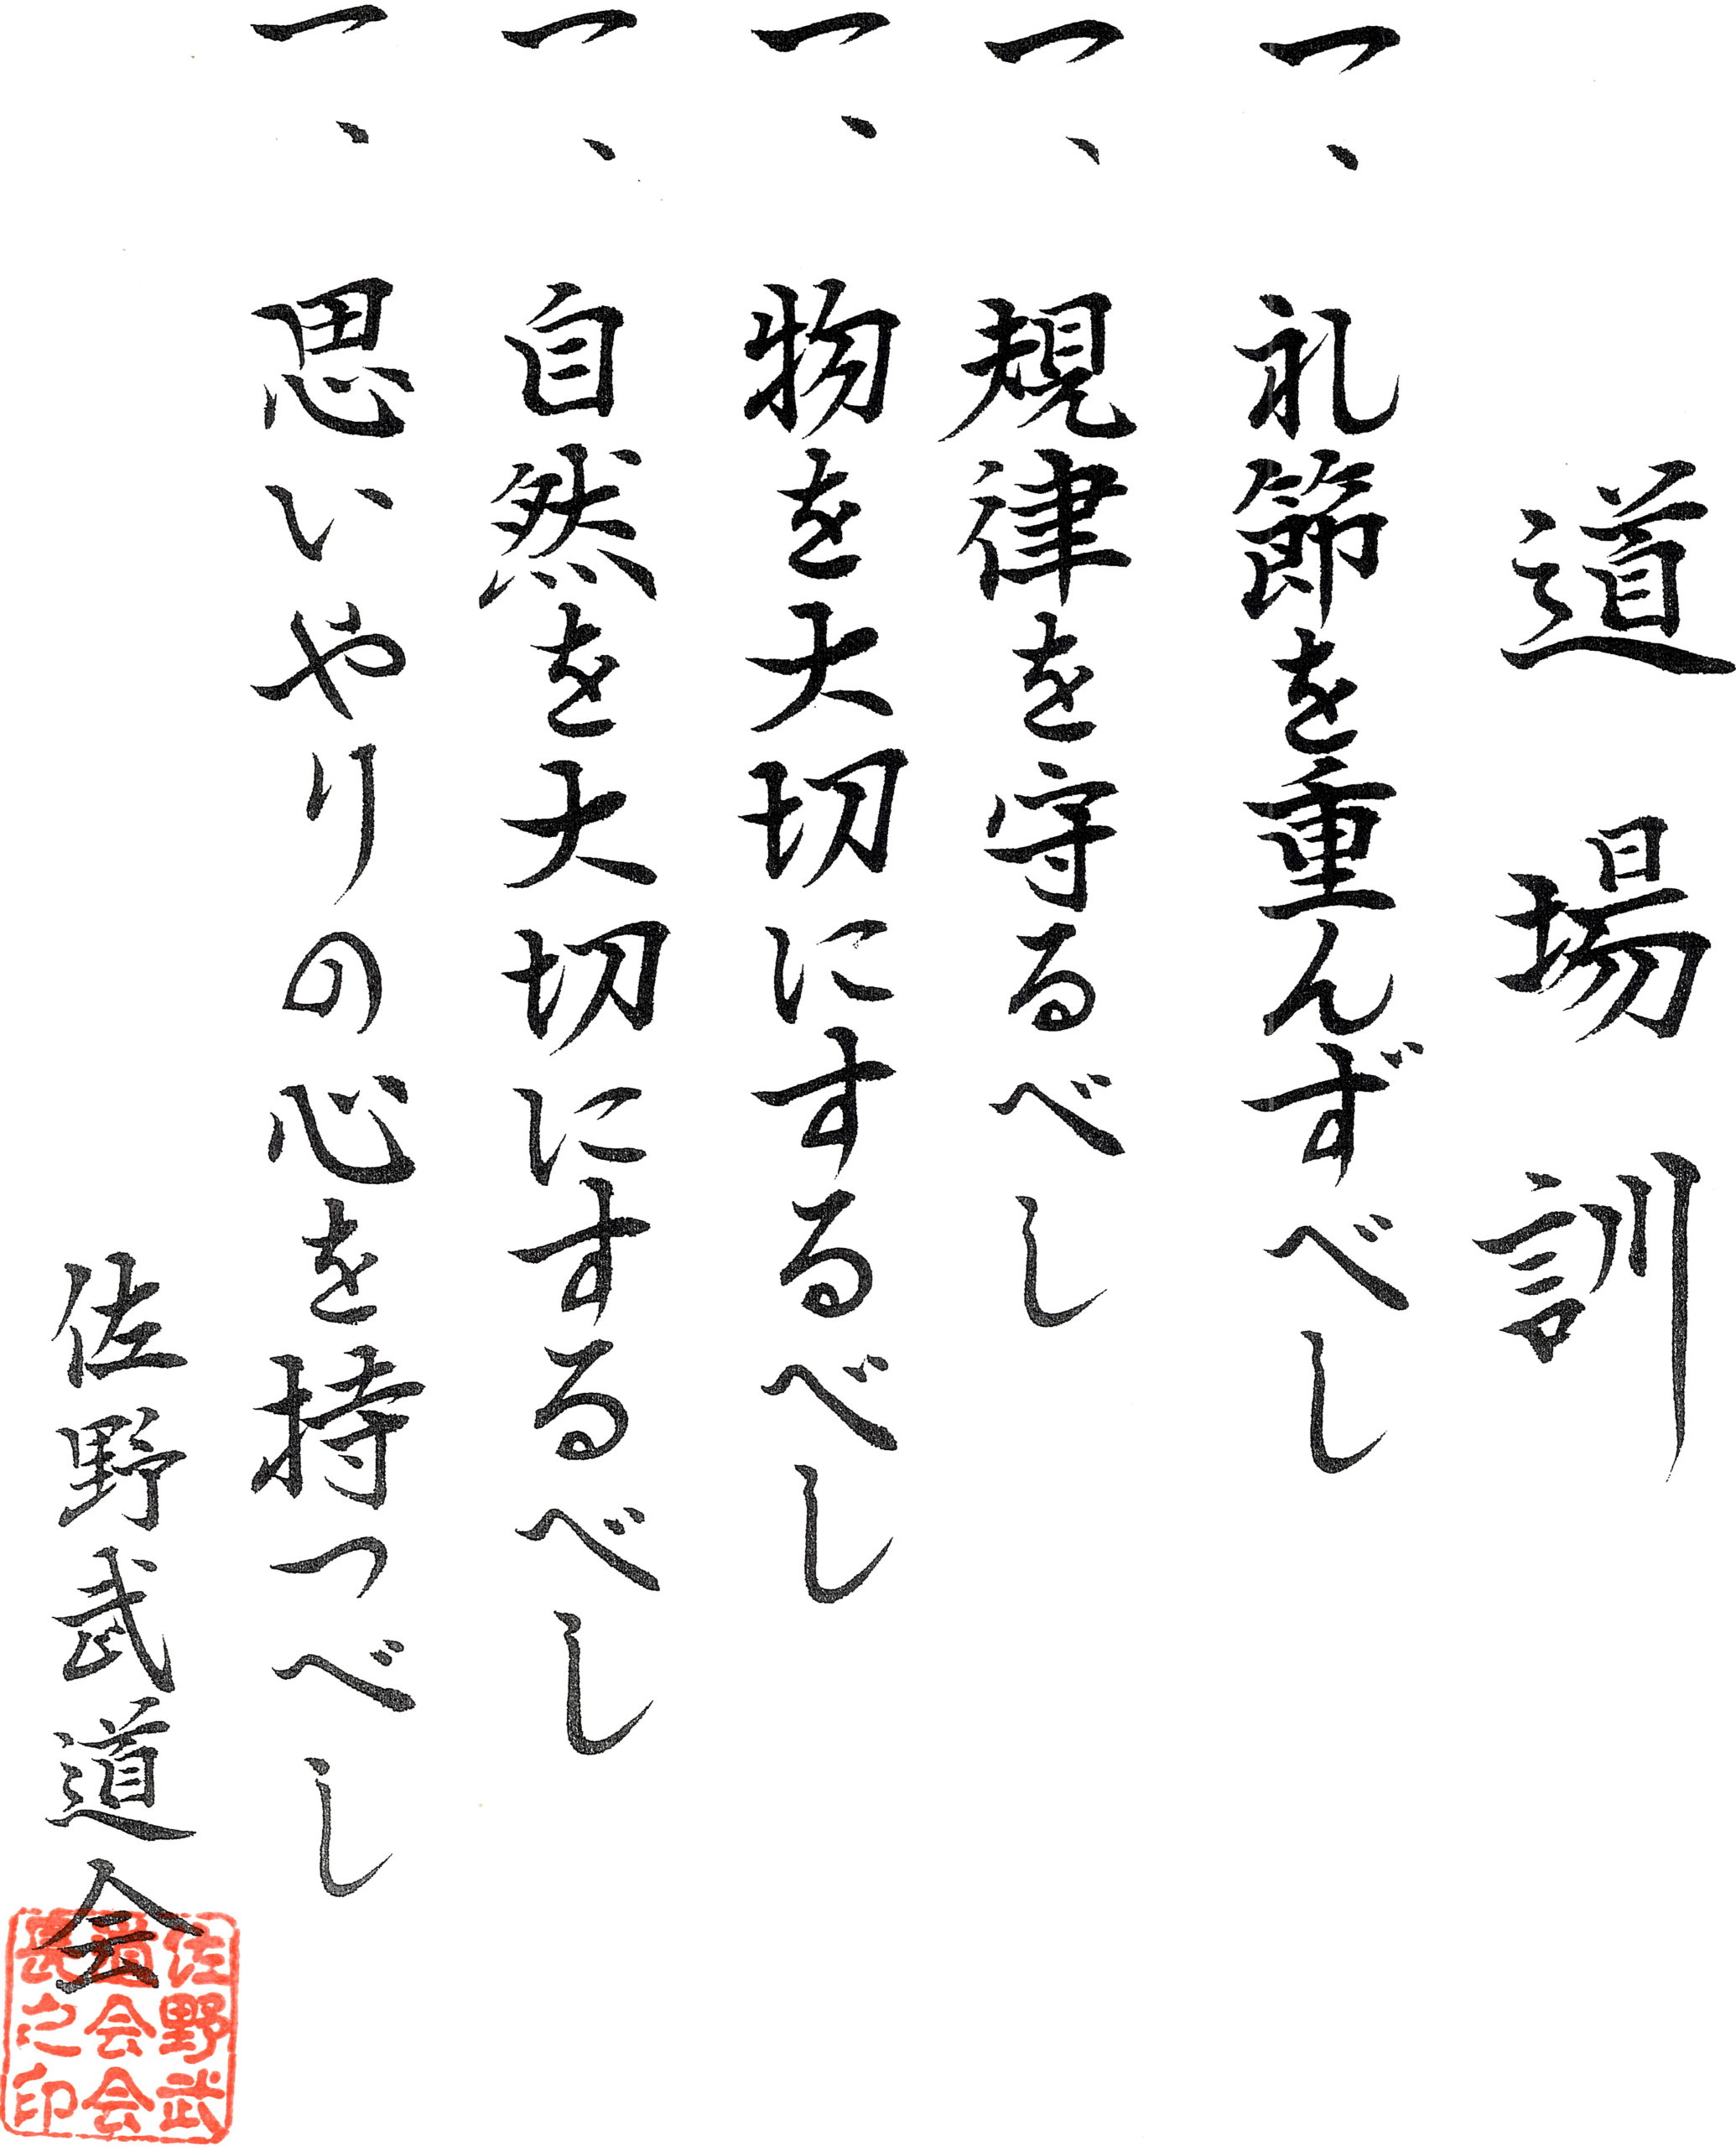 道場訓
一、礼節を重んずべし
一、規律を守るべし
一、物を大切にするべし
一、自然を大切にするべし
一、思いやりの心を持つべし
佐野武道会
佐野武
道会会
長之印